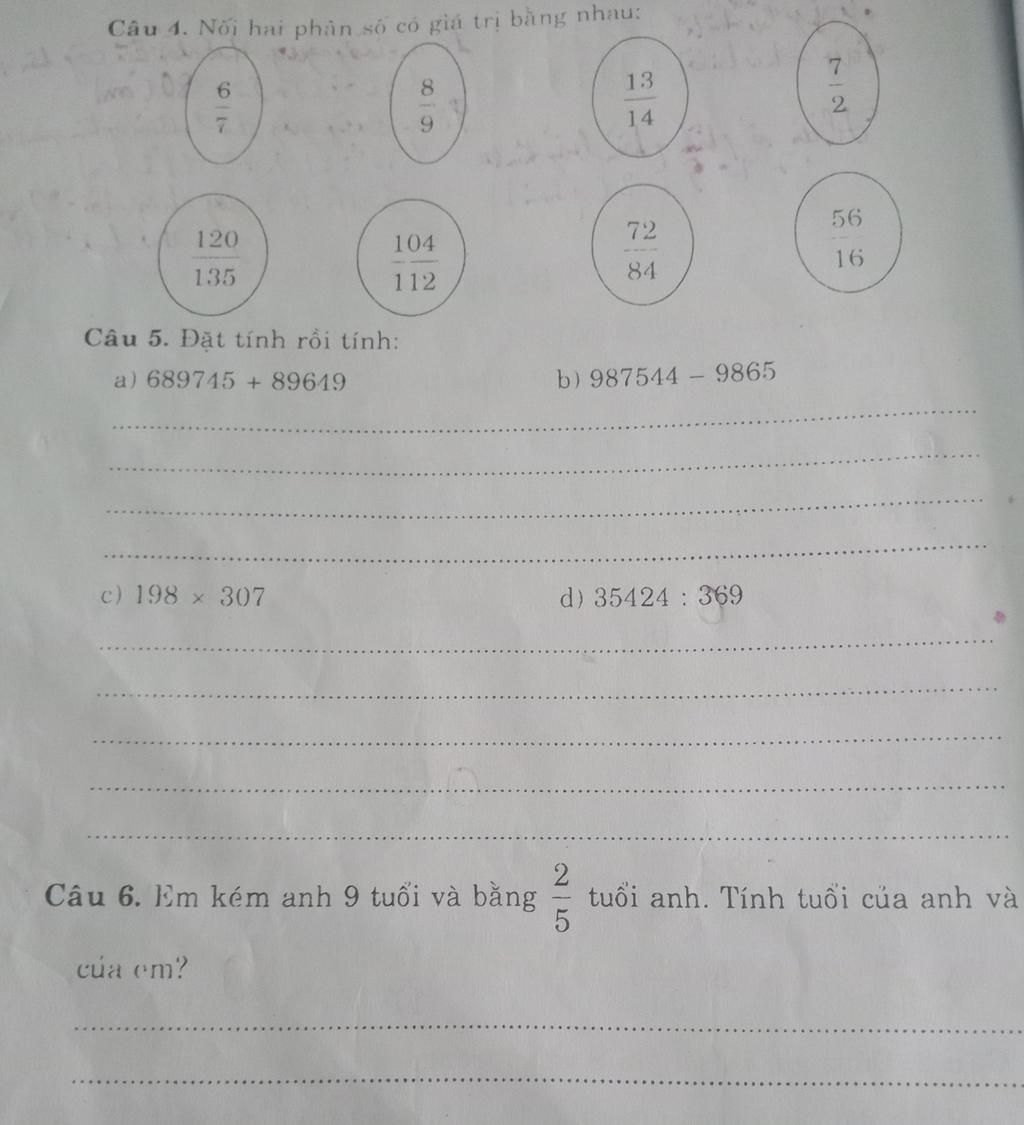 Câu 4. Nối hai phân số có giá trị bằng nhau:
6/7 8/9 13/14 7/2
120/135 104/112 72/84 56/16
Câu 5. Đặt tính rồi tính:
a) 689745 + 89649 b) 987544 – 9865
c) 198 × 307 d) 35424 : 369
Câu 6. Em kém anh 9 tuổi và bằng 2/5 tuổi anh. Tính tuổi của anh và
của em?